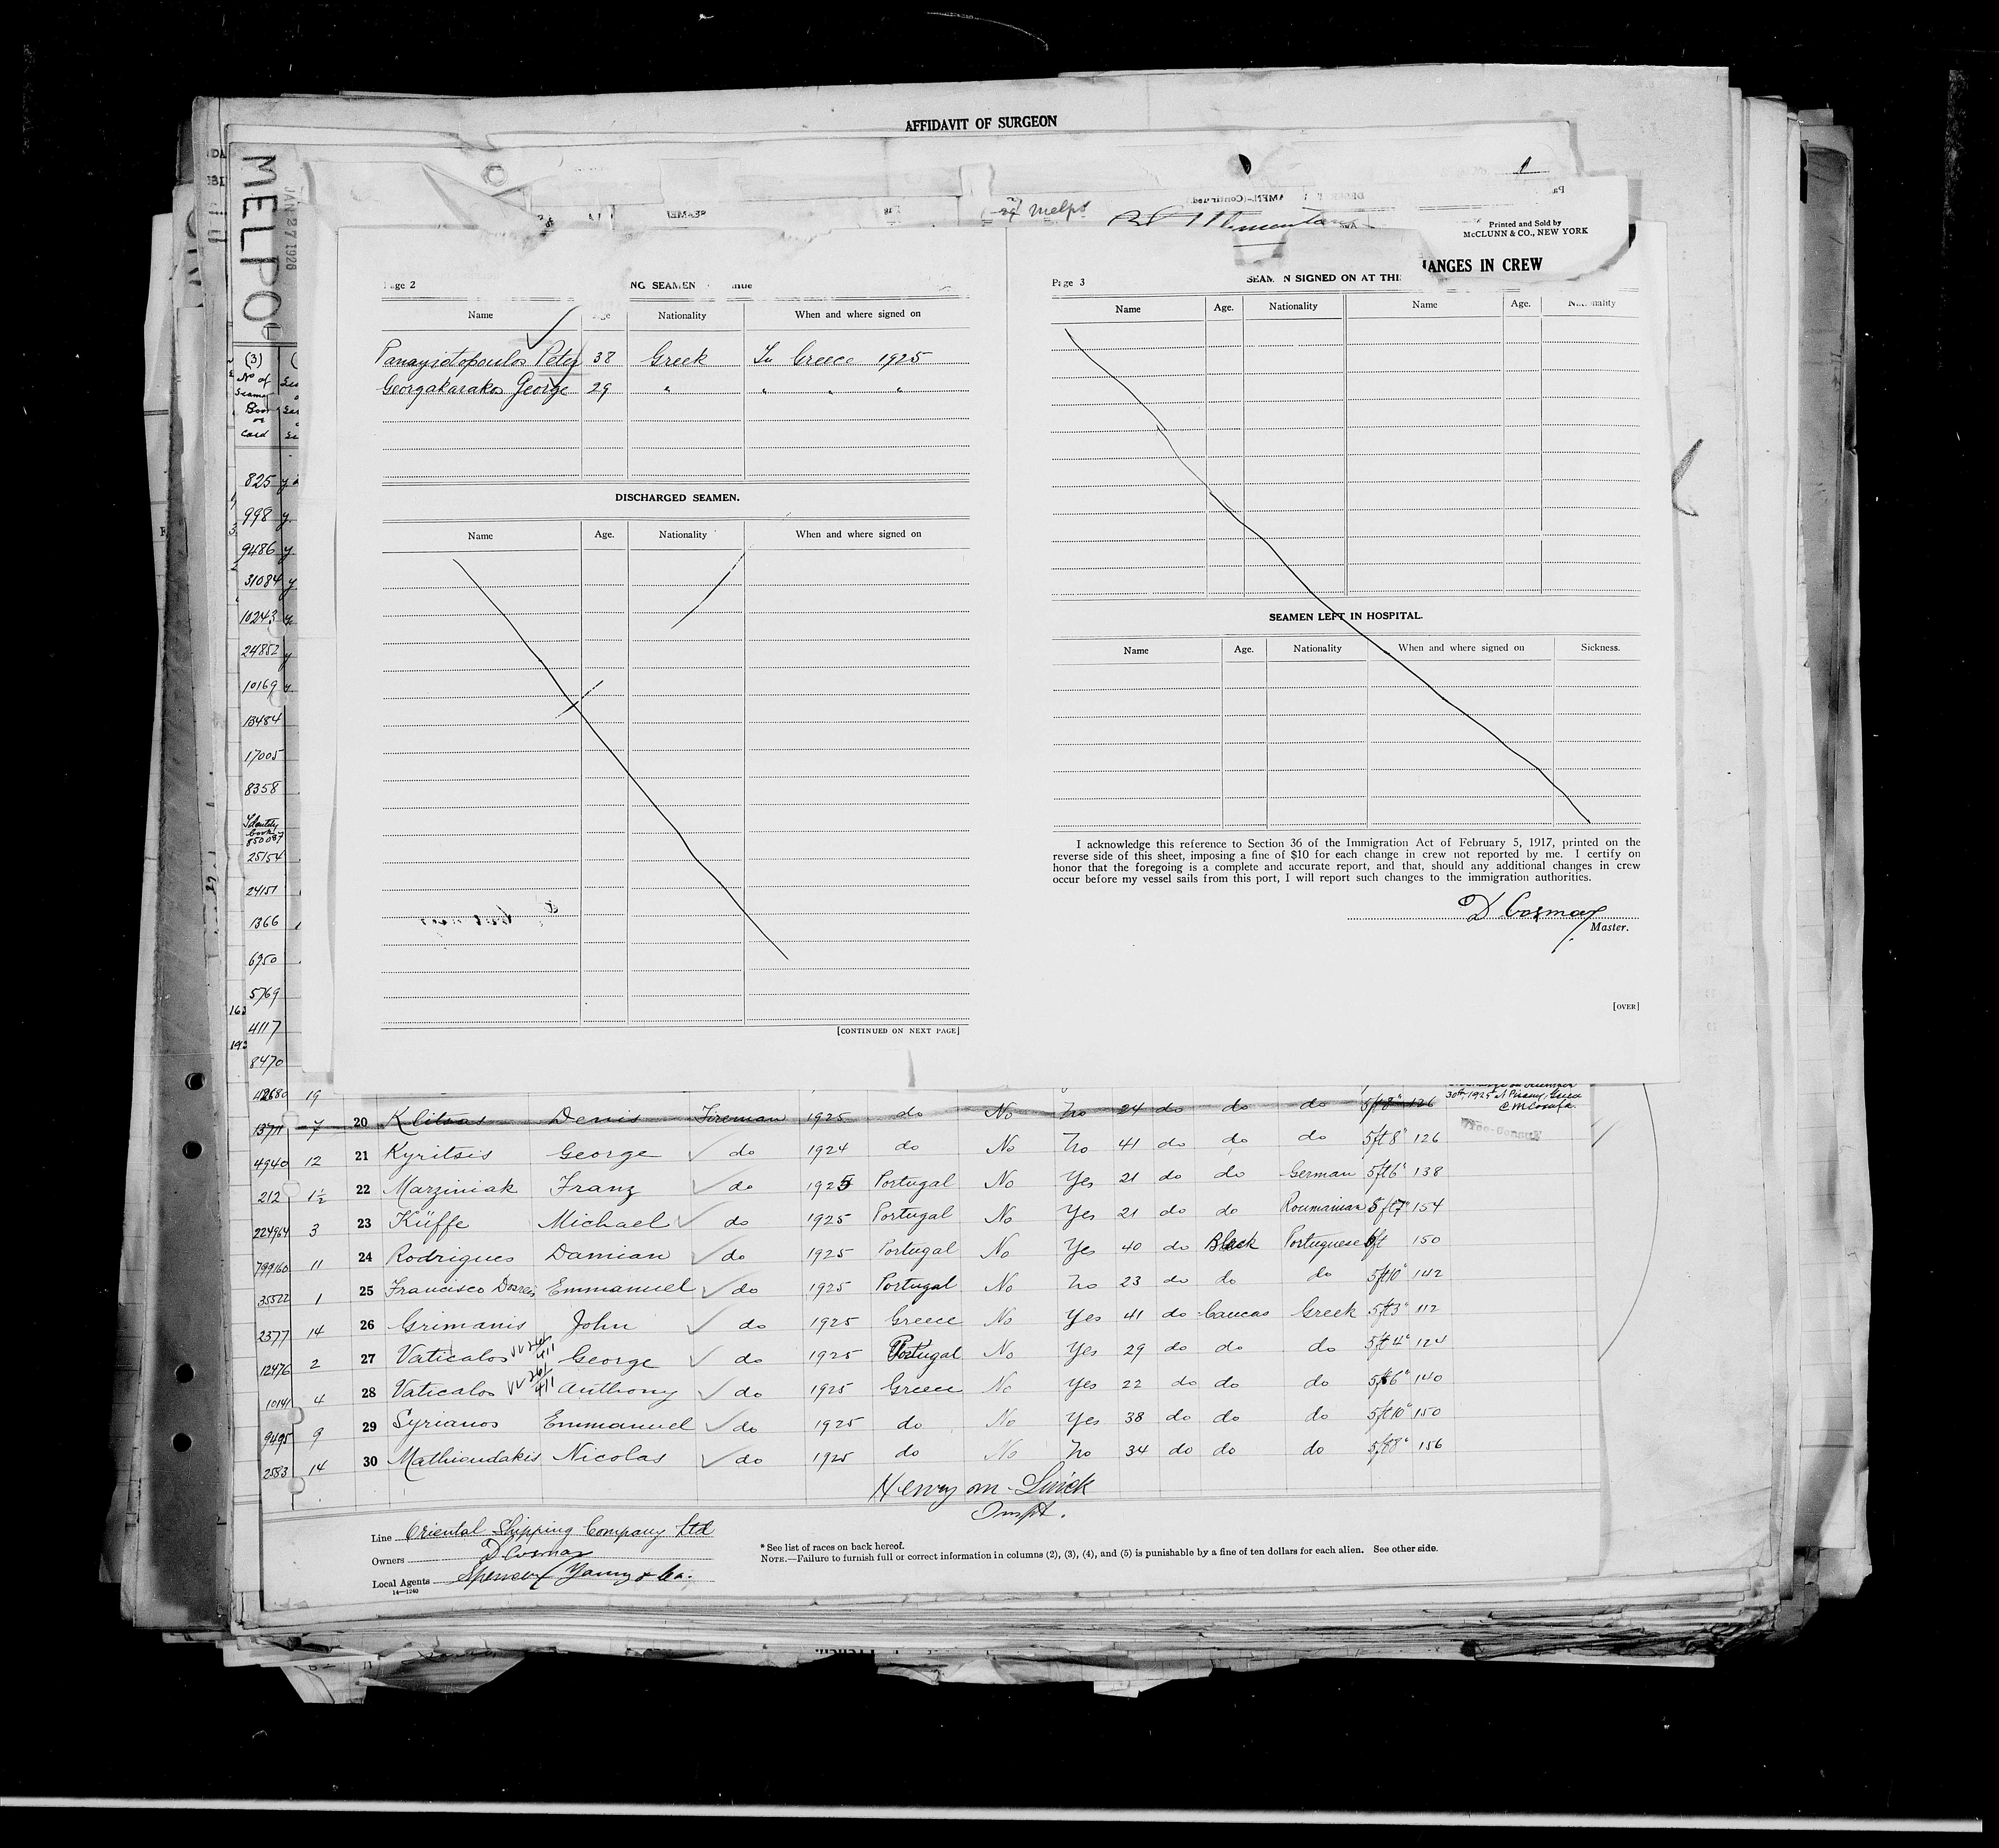 AFFIDAVIT OF SURGEON
MELPO
JAN 27 1926
24 Melps
Printed and Sold by
McCLUNN & CO., NEW YORK
ANGES IN CREW
Page 2
NG SEAMEN
Name Nationality When and where signed on
Panayiotopoulos Peter 38 Greek In Greece 1925
Georgakarakos George 29 " " " "
DISCHARGED SEAMEN.
Name Age. Nationality When and where signed on
[CONTINUED ON NEXT PAGE]
Page 3
SEAMEN SIGNED ON AT THI
Name Age. Nationality Name Age. Nationality
SEAMEN LEFT IN HOSPITAL.
Name Age. Nationality When and where signed on Sickness.
I acknowledge this reference to Section 36 of the Immigration Act of February 5, 1917, printed on the
reverse side of this sheet, imposing a fine of $10 for each change in crew not reported by me. I certify on
honor that the foregoing is a complete and accurate report, and that, should any additional changes in crew
occur before my vessel sails from this port, I will report such changes to the immigration authorities.
D Cosmay
Master.
[OVER]
(3)
No of
Seamen
Book
or
Card
825 y
998 y
9486 y
31084 y
10243 y
24852 y
10169 y
18484
17005
8358
Identity
book
850087
25154
24151
1366
6950
5769
4117
8470
42680 19
30th 1925 at Piraeus, Greece
13711 7 20 Klitsas Denis Fireman 1925 do No No 24 do do do 5ft8" 126
4940 12 21 Kyritsis George do 1924 do No No 41 do do do 5ft8" 126
212 1½ 22 Marziniak Franz do 1925 Portugal No Yes 21 do do German 5ft6" 138
224964 3 23 Küffe Michael do 1925 Portugal No Yes 21 do do Roumanian 5ft7" 154
799160 11 24 Rodrigues Damian do 1925 Portugal No Yes 40 do Black Portuguese 6ft 150
35522 1 25 Francisco Dosreis Emmanuel do 1925 Portugal No No 23 do do do 5ft10" 142
2377 14 26 Grimanis John do 1925 Greece No Yes 41 do Caucas Greek 5ft3" 112
12476 2 27 Vaticalos George do 1925 Portugal No Yes 29 do do do 5ft4" 124
10141 4 28 Vaticalos Anthony do 1925 Greece No Yes 22 do do do 5ft6" 140
9495 9 29 Syrianos Emmanuel do 1925 do No Yes 38 do do do 5ft10" 150
2583 14 30 Mathioudakis Nicolas do 1925 do No No 34 do do do 5ft8" 156
Henry M. Quick
Inspt.
Line Oriental Shipping Company Ltd
Owners D Cosmay
Local Agents Spencer Young & Co.
14—1240
* See list of races on back hereof.
NOTE.—Failure to furnish full or correct information in columns (2), (3), (4), and (5) is punishable by a fine of ten dollars for each alien. See other side.